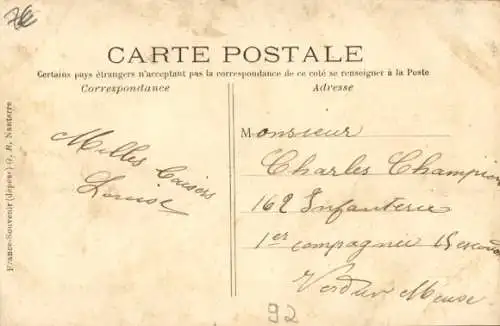 CARTE POSTALE
Certains pays étrangers n'acceptant pas la correspondance de ce coté se renseigner à la Poste
Correspondance
Adresse
Milles baisers
Louise
Monsieur
Charles Champion
162 Infanterie
1er compagnie
Verdun Meuse
92
France-Souvenir (déposé) G. R. Nanterre